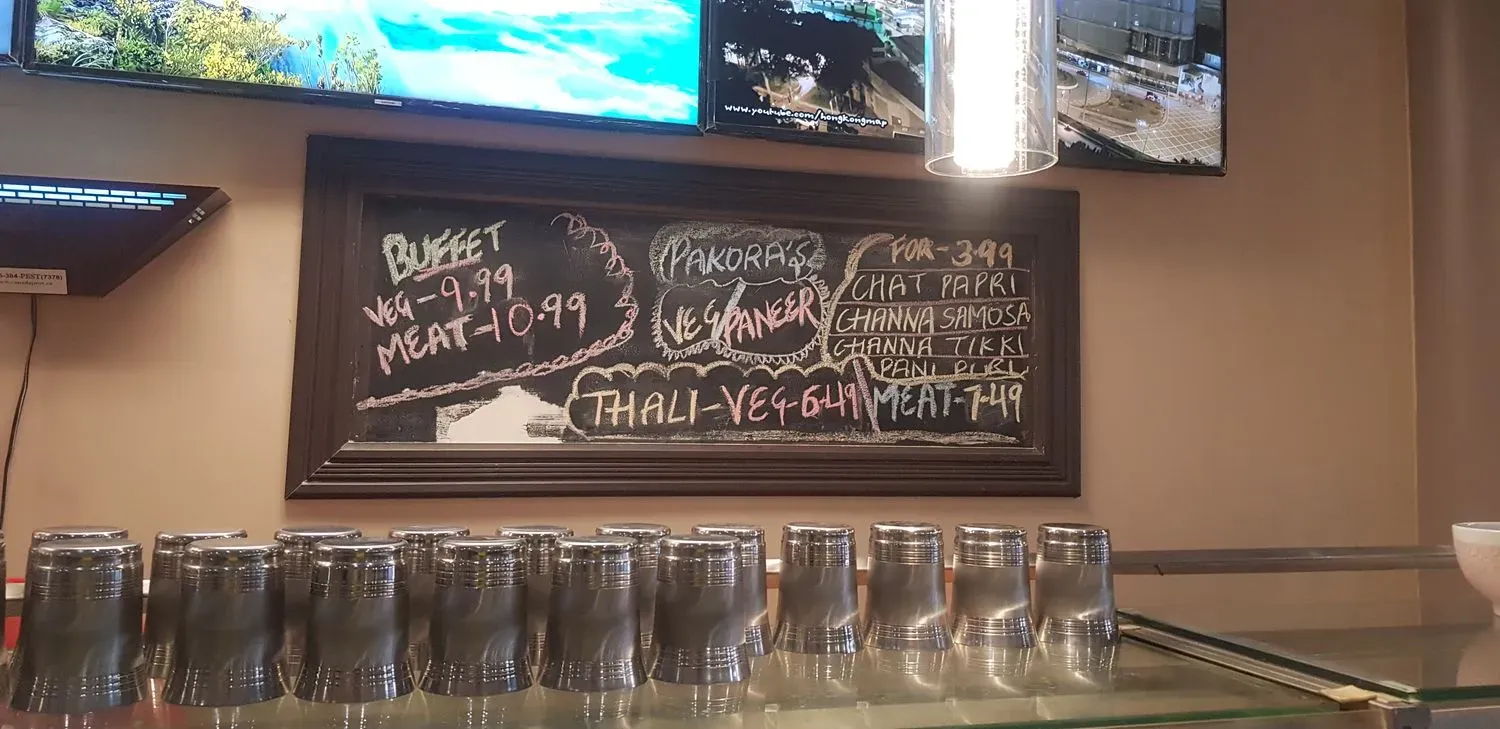 www.youtube.com/hongkongmap
BUFFET
VEG-9.99
MEAT-10.99
PAKORA'S
VEG/PANEER
FOR-3.99
CHAT PAPRI
CHANNA SAMOSA
CHANNA TIKKI
PANI PURI
THALI-VEG-6.49/MEAT-7.49
-304-PEST(7378)